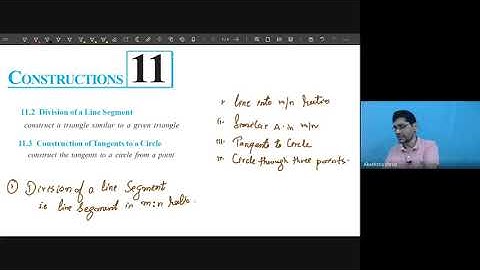 CONSTRUCTIONS 11
11.2 Division of a Line Segment
construct a triangle similar to a given triangle
11.3 Construction of Tangents to a Circle
construct the tangents to a circle from a point
i. Line into m/n Ratio
ii. Similar Δ in m/n
iii. Tangents to Circle
iv. Circle through three points.
① Division of a line Segment
i.e. line Segment in m:n Ratio.